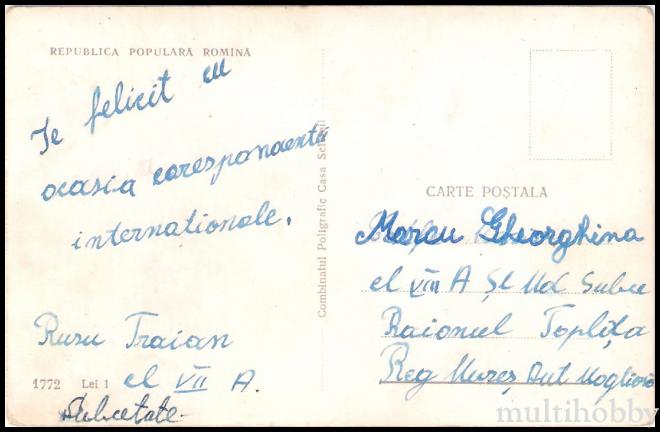 REPUBLICA POPULARĂ ROMÎNĂ
Te felicit cu
ocasia corespondența
internationale.
Rusu Traian
el VII A.
Subcetate
1772 Lei 1
Combinatul Poligrafic Casa Scînteii
CARTE POȘTALĂ
Marcu Gheorghina
el VIII A Șc Md Subce
Raionul Toplița
Reg Mureș Aut Maghiară
multihobby